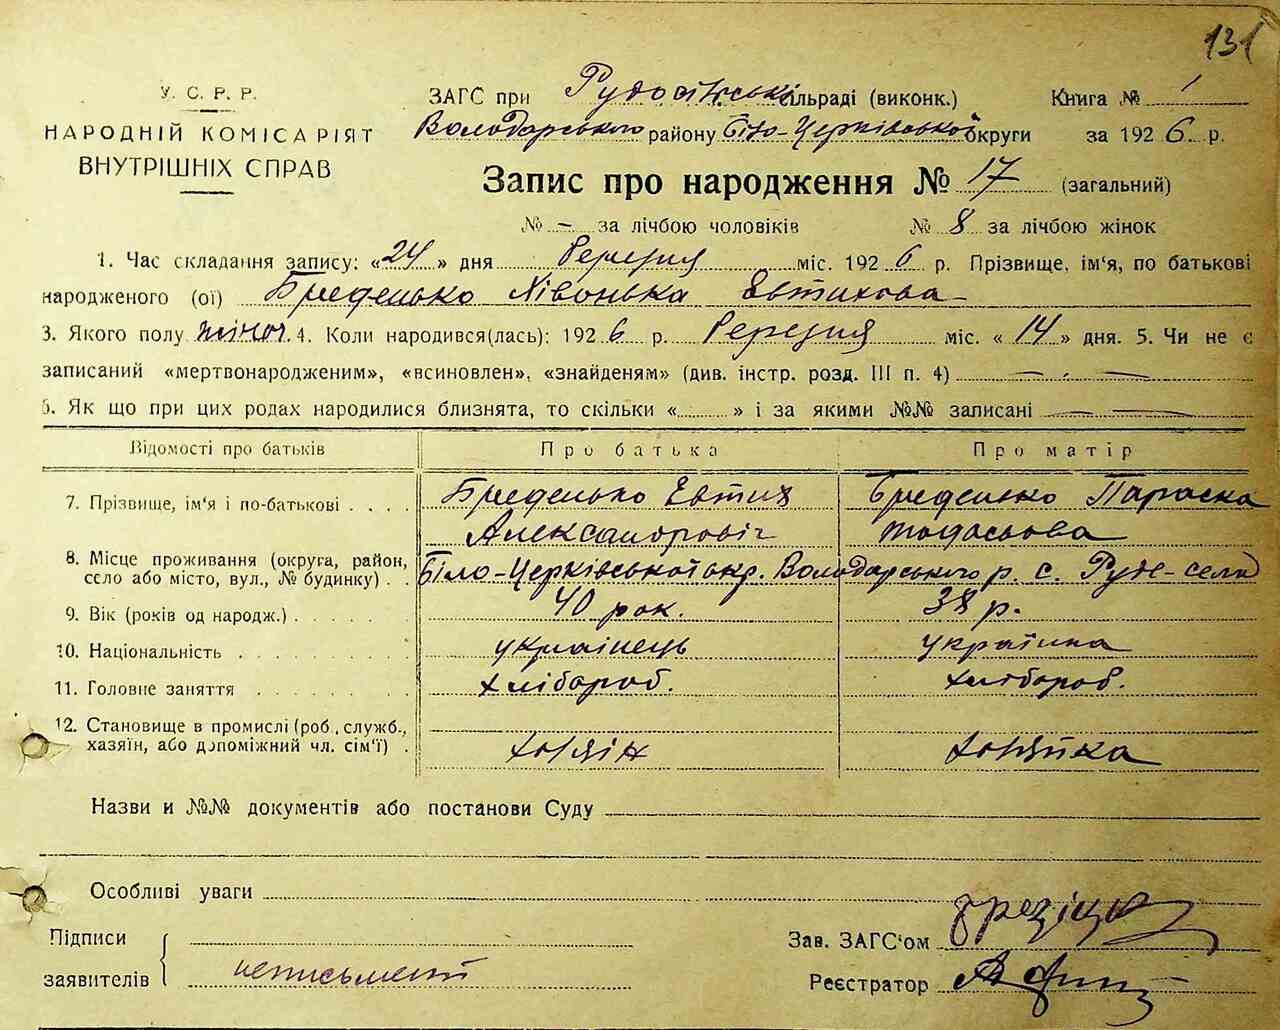 131
У. С. Р. Р.
НАРОДНІЙ КОМІСАРІЯТ
ВНУТРІШНІХ СПРАВ
ЗАГС при Рудосільській сільраді (виконк.) Книга № 1
Володарського району Біло-Церківської округи за 1926 р.
Запис про народження № 17 (загальний)
№ – за лічбою чоловіків № 8 за лічбою жінок
1. Час складання запису: «24» дня березня міс. 1926 р. Прізвище, ім'я, по батькові
народженого (ої) Бреденько Хівонька Евтихова
3. Якого полу жіноч. 4. Коли народився(лась): 1926 р. березня міс. «14» дня. 5. Чи не є
записаний «мертвонародженим», «всиновлен», «знайденям» (див. інстр. розд. III п. 4) — . —
6. Як що при цих родах народилися близнята, то скільки « » і за якими №№ записані — —
Відомості про батьків Про батька Про матір
7. Прізвище, ім'я і по-батькові . . . . Бреденько Евтих Бреденько Параска
Александрович Тодосьова
8. Місце проживання (округа, район,
село або місто, вул., № будинку) . . Біло-Церківської окр. Володарського р. с. Руде-село
9. Вік (років од народж.) . . . . . . 40 рок. 38 р.
10. Національність . . . . . . . . українець українка
11. Головне заняття . . . . . . . хлібороб. хлібороб.
12. Становище в промислі (роб., служб.,
хазяїн, або допоміжний чл. сім'ї) . хозяїн хозяйка
Назви и №№ документів або постанови Суду
Особливі уваги
Підписи
заявителів неписьмені
Зав. ЗАГС'ом
Реєстратор